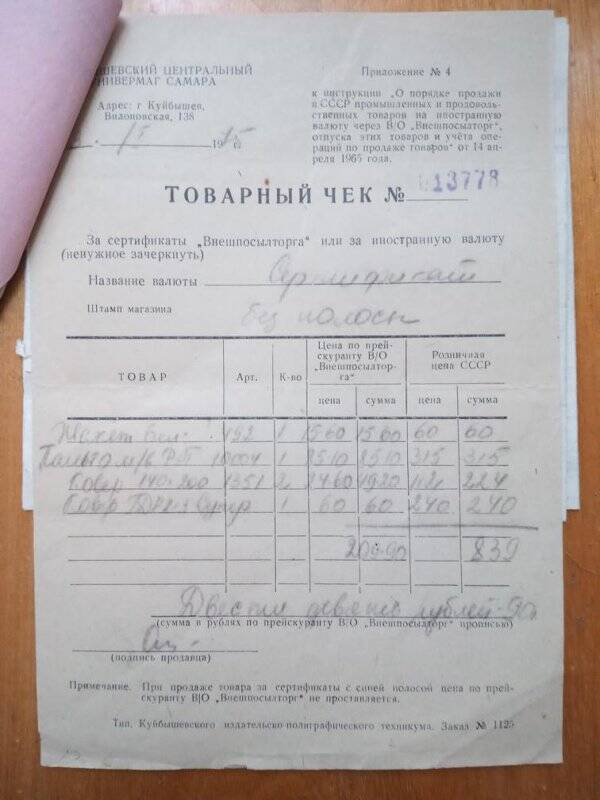 ШЕВСКИЙ ЦЕНТРАЛЬНЫЙ
НИВЕРМАГ САМАРА
Адрес: г Куйбышев,
Вилоновская, 138
15 1975
Приложение № 4
к инструкции „О порядке продажи
в СССР промышленных и продоволь-
ственных товаров на иностранную
валюту через В/О „Внешпосылторг",
отпуска этих товаров и учёта опе-
раций по продаже товаров" от 14 ап-
реля 1965 года.
ТОВАРНЫЙ ЧЕК № 013778
За сертификаты „Внешпосылторга" или за иностранную валюту
(ненужное зачеркнуть)
Название валюты Сертификат
Штамп магазина без полосы
ТОВАР Арт. К-во Цена по прей-скуранту В/О „Внешпосылтор-га" Розничная цена СССР
цена сумма цена сумма
Жакет 152 1 1560 1560 60 60
Пальто м/в 1 2510 2510 315 315
Ковер 140×200 1351 2 1920 112 224
Ковер 1 60 60 240 240
209-90 839
Двести девять рублей 90
(сумма в рублях по прейскуранту В/О „Внешпосылторг" прописью)
(подпись продавца)
Примечание. При продаже товара за сертификаты с синей полосой цена по прей-
скуранту В/О „Внешпосылторг" не проставляется.
Тип. Куйбышевского издательско-полиграфического техникума. Заказ № 1125